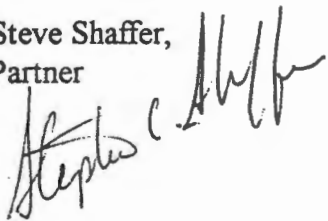 Steve Shaffer,
Partner
Stephen C. Shaffer